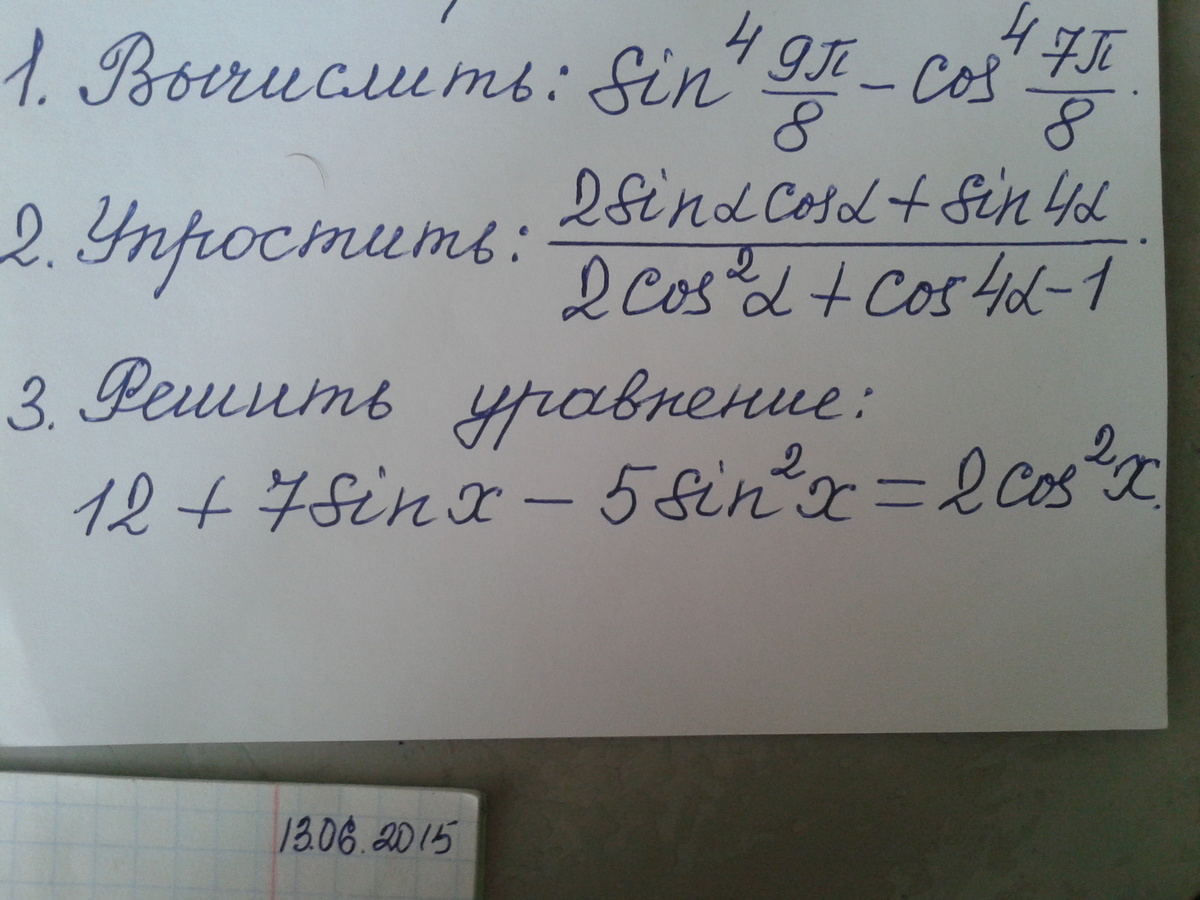 1. Вычислить: sin⁴ 9π/8 - cos⁴ 7π/8.
2. Упростить: (2sinα cosα + sin4α)/(2cos²α + cos4α-1).
3. Решить уравнение:
12 + 7sinx - 5sin²x = 2cos²x.
13.06.2015